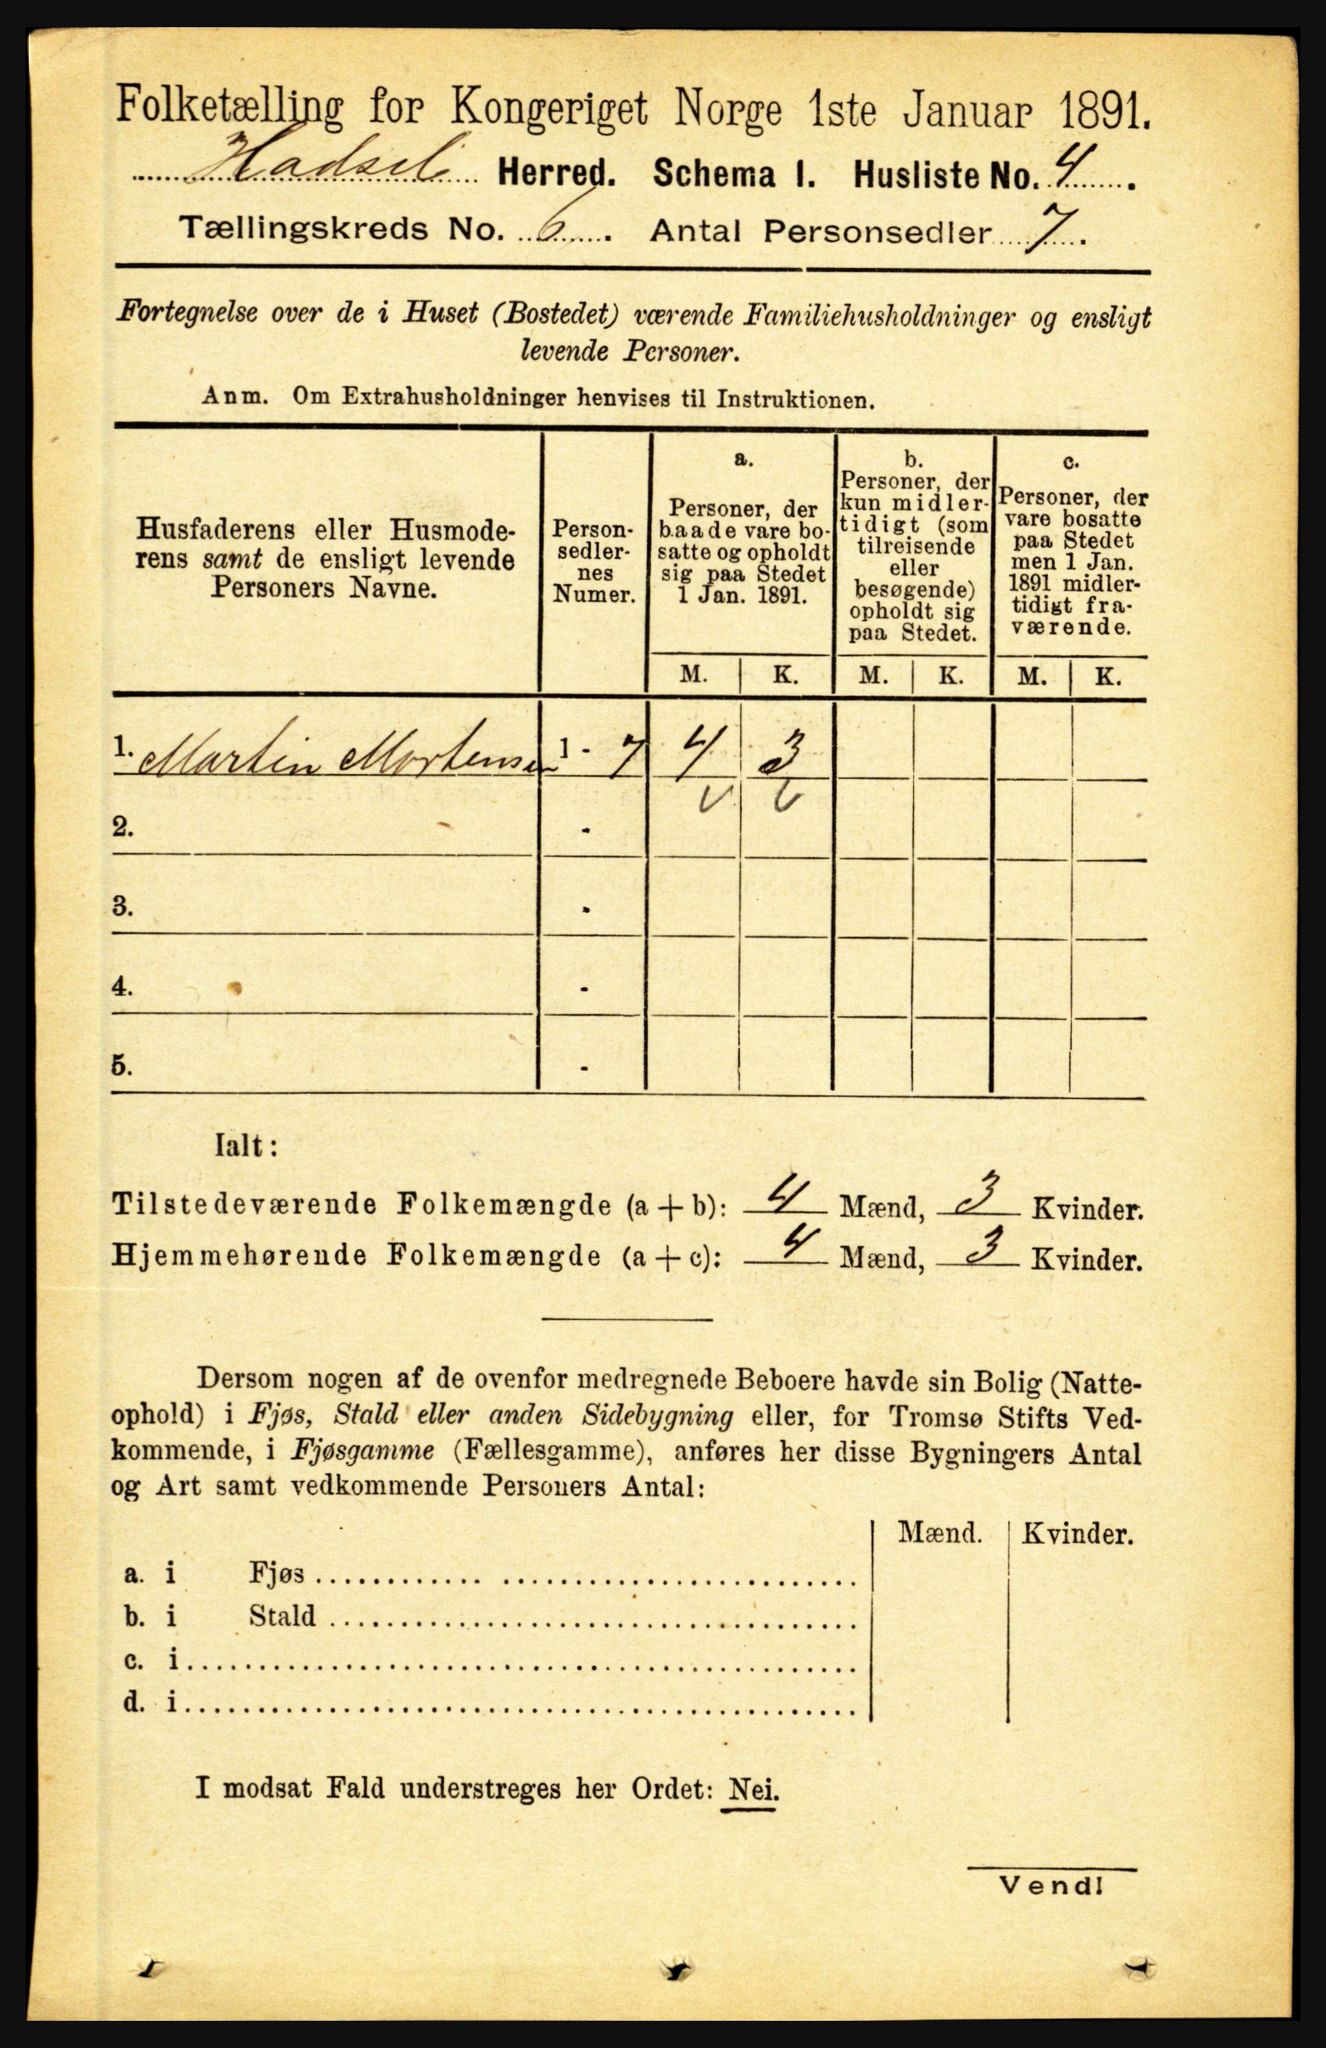 Folketælling for Kongeriget Norge 1ste Januar 1891.
Hadsel Herred. Schema I. Husliste No. 4.
Tællingskreds No. 6. Antal Personsedler 7.
Fortegnelse over de i Huset (Bostedet) værende Familiehusholdninger og ensligt
levende Personer.
Anm. Om Extrahusholdninger henvises til Instruktionen.
Husfaderens eller Husmode-
rens samt de ensligt levende
Personers Navne.
Person-
sedler-
nes
Numer.
a.
Personer, der
baade vare bo-
satte og opholdt
sig paa Stedet
1 Jan. 1891.
b.
Personer, der
kun midler-
tidigt (som
tilreisende
eller
besøgende)
opholdt sig
paa Stedet.
c.
Personer, der
vare bosatte
paa Stedet
men 1 Jan.
1891 midler-
tidigt fra-
værende.
M. K. M. K. M. K.
1. Martin Mortensen 1 - 7 4 3
2. -
3. -
4. -
5. -
Ialt:
Tilstedeværende Folkemængde (a + b): 4 Mænd, 3 Kvinder.
Hjemmehørende Folkemængde (a + c): 4 Mænd, 3 Kvinder.
Dersom nogen af de ovenfor medregnede Beboere havde sin Bolig (Natte-
ophold) i Fjøs, Stald eller anden Sidebygning eller, for Tromsø Stifts Ved-
kommende, i Fjøsgamme (Fællesgamme), anføres her disse Bygningers Antal
og Art samt vedkommende Personers Antal:
Mænd. Kvinder.
a. i Fjøs
b. i Stald
c. i
d. i
I modsat Fald understreges her Ordet: Nei.
Vend!